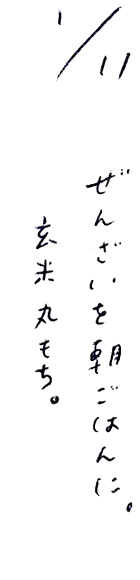 1/11
ぜんざいを朝ごはんに。
玄米丸もち。